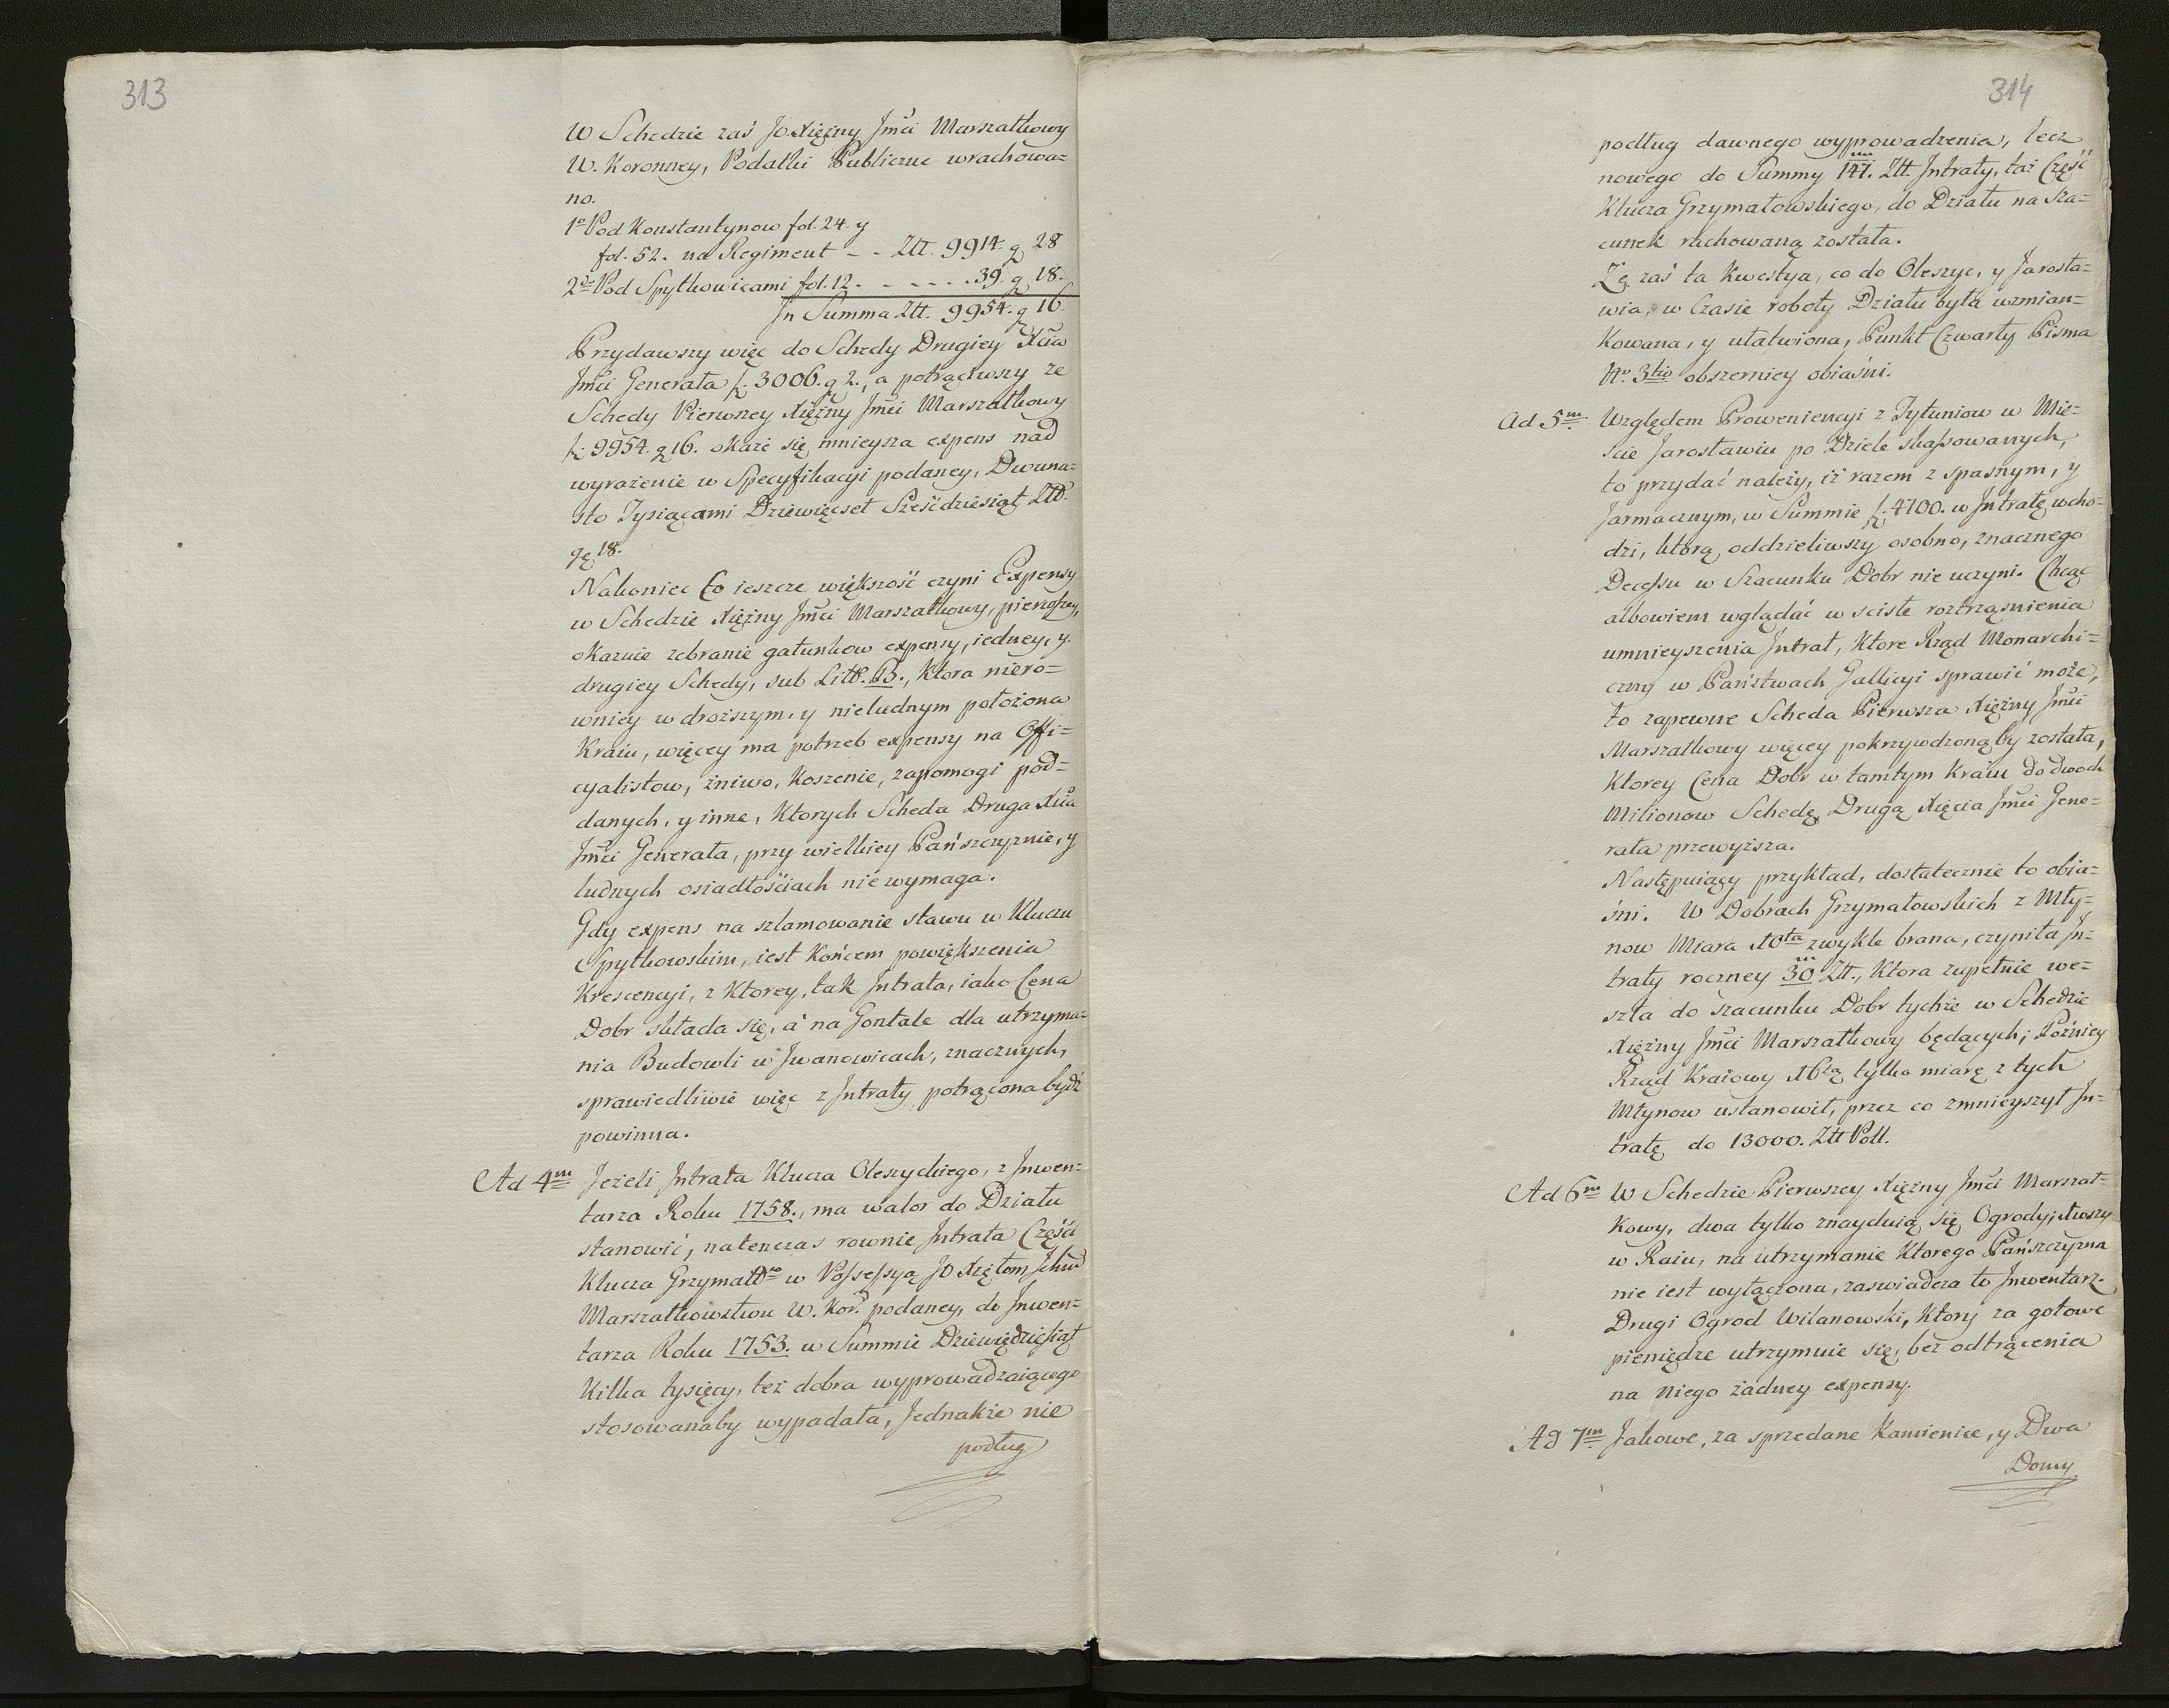 313
W Schedzie zaś Jo. Xiężny Jmci Marszałkowy
W. Koronney, Podatki Publiczne wrachowa=
no.
1º Pod Konstantynow fol. 24. y
fol. 52. na Regiment - - Ztt. 9914. g 28
2do Pod Spytkowicami fol. 12. - - - - . 39. g 18.
Jn Summa Ztt. 9954. g 16.
Przydawszy więc do Schedy Drugiey Xcia
Jmci Generała f. 3006. g 2., a potrąciwszy ze
Schedy Pierwszey Xiężny Jmci Marszałkowy
f. 9954. g 16. okaże się mnieysza expens nad
wyrażenie w Specyfikacyi podaney, Dwuna=
sto Tysiącami Dziewięcset Sześćdziesiąt Ztt.
gę 18.
Nakoniec Co ieszcze większość czyni Expensy
w Schedzie Xiężny Jmci Marszałkowy, pierwszey,
okazuie zebranie gatunkow expensy, iedney, y
drugiey Schedy, sub Litt. B., Ktora niero=
wniey w droższym, y nieludnym położona
Kraiu, więcey ma potrzeb expensy na Offi=
cyalistow, żniwo, Koszenie, zapomogi pod=
danych, y inne, Ktorych Scheda Druga Xcia
Jmci Generała, przy wielkiey Pańszczyznie, y
ludnych osiadłościach nie wymaga.
Gdy expens na szlamowanie stawu w Kluczu
Spytkowskim, iest Końcem powiększenia
Krescencyi, z Ktorey, tak Jntrata, iako Cena
Dobr składa się, a na Gontale dla utrzyma=
nia Budowli w Jwanowicach, znacznych,
sprawiedliwie więc z Jntraty potrącona bydź
powinna.
Ad 4m Jeżeli Jntrata Klucza Oleszyckiego, z Jnwen=
tarza Roku 1758., ma walor do Działu
stanowić, natenczas rownie Jntrata Części
Klucza Grzymałłgo w Possessyą JO Xżętom Jchm
Marszałkowstwu W. Kor. podaney, do Jnwen=
tarza Roku 1753. w Summie Dziewięćdziesiąt
Kilka tysięcy, też dobra wyprowadzaiącego
stosowanaby wypadała, Jednakże nie
podług
314
podług dawnego wyprowadzenia, lecz
nowego do Summy 147. Ztt. Jntraty, taż Część
Klucza Grzymałowskiego, do Działu na sza=
cunek rachowaną została.
Że zaś ta Kwestya, co do Oleszyc, y Jarosła=
wia, w Czasie roboty Działu była wzmian=
Kowana, y ułatwiona, Punkt Czwarty Pisma
Nº 3tio obszerniey obiaśni.
Ad 5m Względem Proweniencyi z Tytuniow w Mie=
ście Jarosławiu po Dziele skassowanych,
to przydać należy, iż razem z spasnym, y
Jarmacznym, w Summie f. 4700. w Jntratę wcho=
dzi, ktorą oddzieliwszy osobno, znacznego
Decessu w Szacunku Dobr nie uczyni. Chcąc
albowiem wglądać w scisłe roztrząśnienia
umnieyszenia Jntrat, Ktore Rząd Monarchi=
czny w Państwach Gallicyi sprawić może,
to zapewne Scheda Pierwsza Xiężny Jmci
Marszałkowy więcey pokrzywdzonąby została,
Ktorey Cena Dobr w tamtym Kraiu do dwoch
Milionow Schedę Drugą Xięcia Jmci Gene=
rała przewyższa.
Następuiący przykład, dostatecznie to obia=
śni. W Dobrach Grzymałowskich z Mły=
now Miara 10ta zwykle brana, czyniła Jn=
traty roczney 30 Ztt., Ktora zupełnie we=
szła do szacunku Dobr tychże w Schedzie
Xiężny Jmci Marszałkowy będących; Pożniey
Rząd Kraiowy 16tą tylko miarę z tych
Młynow ustanowił, przez co zmnieyszył Jn=
tratę do 13000. Ztt Poll.
Ad 6m W Schedzie Pierwszey Xiężny Jmci Marszał=
Kowy, dwa tylko znayduią się Ogrody,
w Raiu, na utrzymanie Ktorego Pańszczyzna
nie iest wyłączona, zaswiadcza to Jnwentarz.
Drugi Ogrod Wilanowski, Ktory za gotowe
pieniędze utrzymuie się, bez odtrącenia
na niego żadney expensy.
Ad 7m Jakowe, za sprzedane Kamienice, y Dwa
Domy